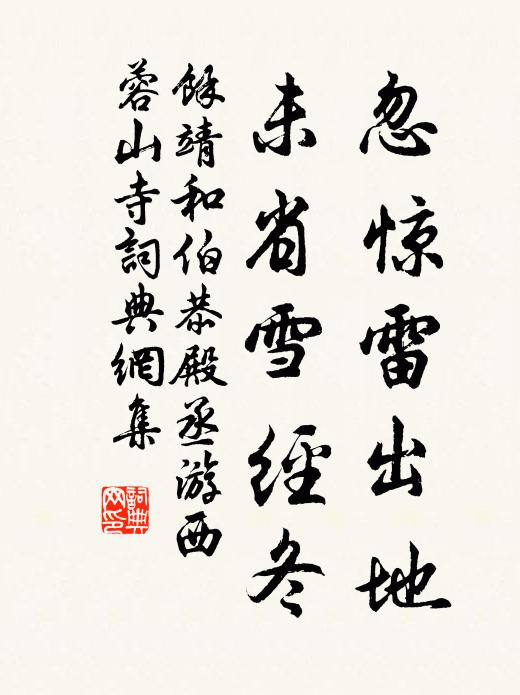 忽惊雷出地
未省雪經冬
餘靖和伯恭殿丞游西
蓉山寺詞典網集
詞典
网印